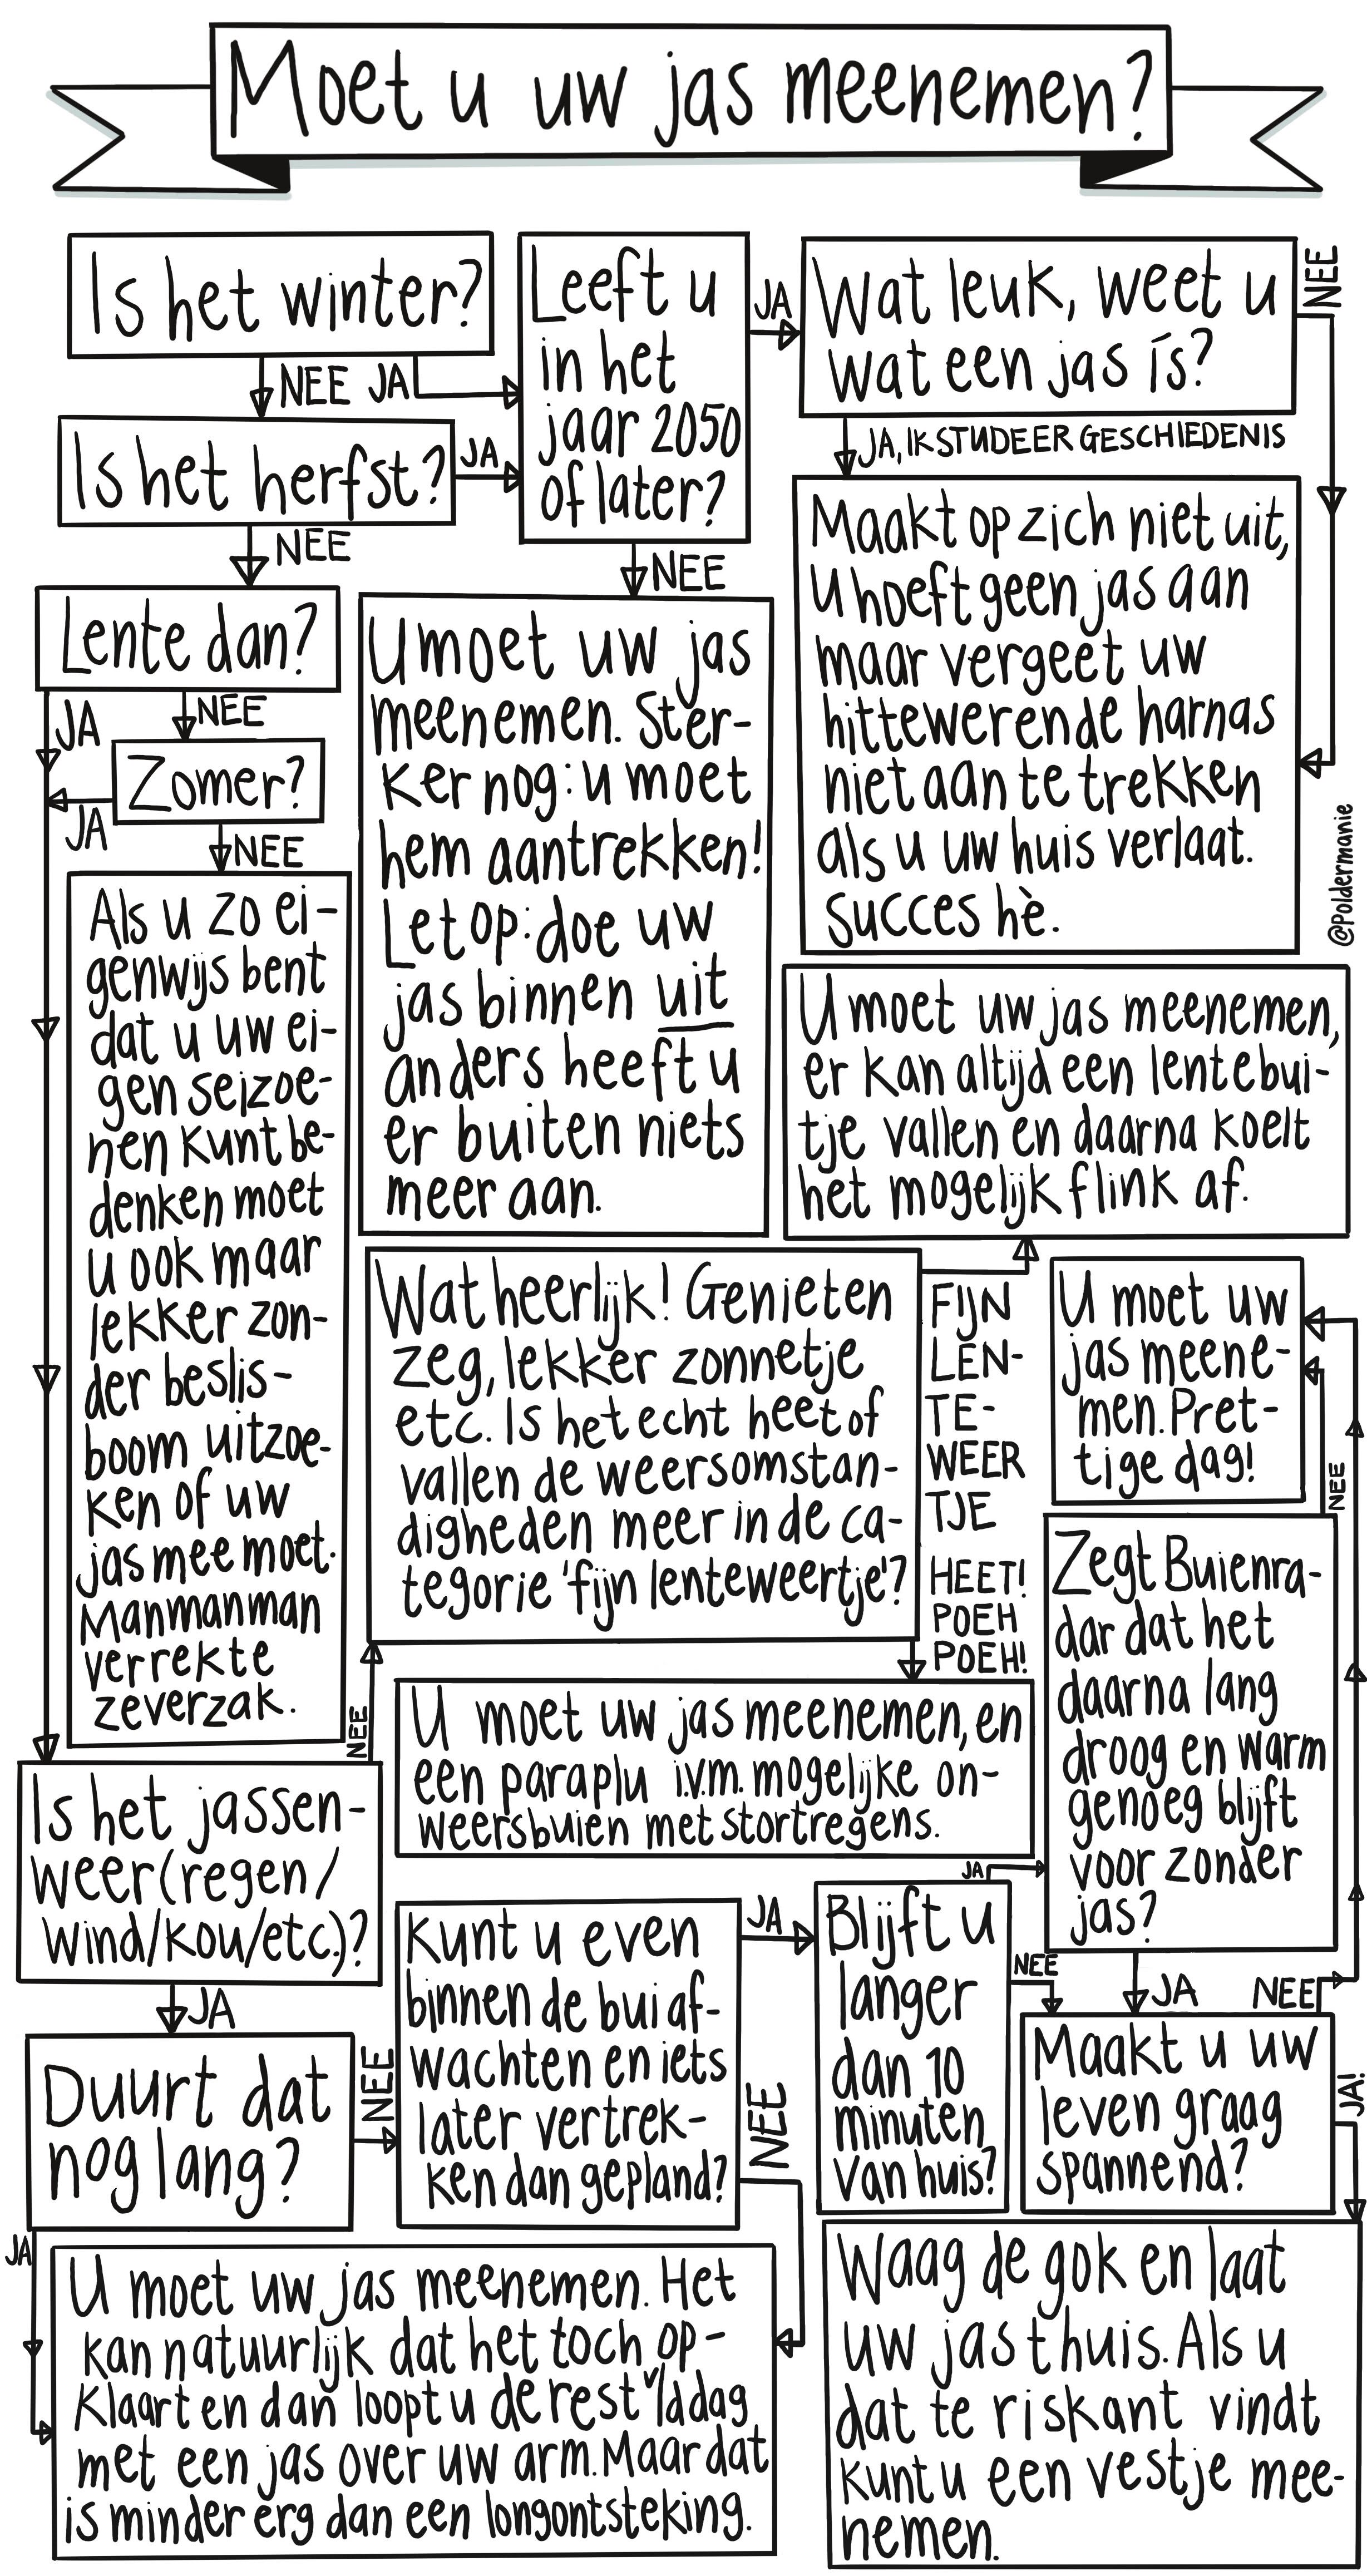 Moet u uw jas meenemen?
Is het winter?
NEE
JA
Is het herfst?
JA
NEE
Leeft u
in het
jaar 2050
of later?
JA
NEE
Wat leuk, weet u
wat een jas ís?
NEE
JA, IK STUDEER GESCHIEDENIS
Maakt op zich niet uit,
u hoeft geen jas aan
maar vergeet uw
hittewerende harnas
niet aan te trekken
als u uw huis verlaat.
Succes hè.
@Poldermanie
Lente dan?
JA
NEE
Zomer?
JA
NEE
Als u zo ei-
genwijs bent
dat u uw ei-
gen seizoe-
nen kunt be-
denken moet
u ook maar
lekker zon-
der beslis-
boom uitzoe-
ken of uw
jas mee moet.
Manmanman
verrekte
zeverzak.
U moet uw jas
meenemen. Ster-
ker nog: u moet
hem aantrekken!
Let op: doe uw
jas binnen uit
anders heeft u
er buiten niets
meer aan.
U moet uw jas meenemen,
er kan altijd een lentebui-
tje vallen en daarna koelt
het mogelijk flink af.
Wat heerlijk! Genieten
zeg, lekker zonnetje
etc. Is het echt heet of
vallen de weersomstan-
digheden meer in de ca-
tegorie 'fijn lenteweertje'?
FIJN
LEN-
TE-
WEER
TJE
HEET!
POEH
POEH!
U moet uw
jas meene-
men. Pret-
tige dag!
NEE
Zegt Buienra-
dar dat het
daarna lang
droog en warm
genoeg blijft
voor zonder
jas?
JA
NEE
U moet uw jas meenemen, en
een paraplu i.v.m. mogelijke on-
weersbuien met stortregens.
NEE
Is het jassen-
weer (regen/
wind/kou/etc.)?
JA
Duurt dat
nog lang?
NEE
JA
Kunt u even
binnen de bui af-
wachten en iets
later vertrek-
ken dan gepland?
JA
NEE
Blijft u
langer
dan 10
minuten
van huis?
JA
NEE
Maakt u uw
leven graag
spannend?
JA!
U moet uw jas meenemen. Het
kan natuurlijk dat het toch op-
klaart en dan loopt u de rest v/d dag
met een jas over uw arm. Maar dat
is minder erg dan een longontsteking.
Waag de gok en laat
uw jas thuis. Als u
dat te riskant vindt
kunt u een vestje mee-
nemen.